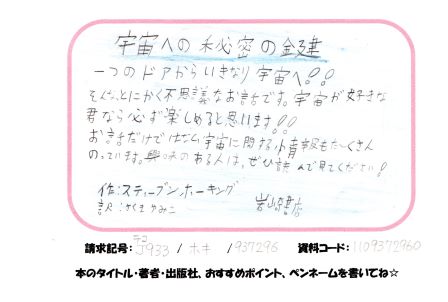 宇宙への秘密の鍵
一つのドアからいきなり宇宙へ!!
そんな、とにかく不思議なお話です。宇宙が好きな
君なら必ず楽しめると思います!!
お話だけではなく宇宙に関する情報もたくさん
のっています。興味のある人は、ぜひ読んで見てください!
作:スティーブン.ホーキング
訳:さくまゆみこ 岩崎書店
請求記号: J933 / ホキ / 937296 資料コード: 1109372960
本のタイトル・著者・出版社、おすすめポイント、ペンネームを書いてね☆